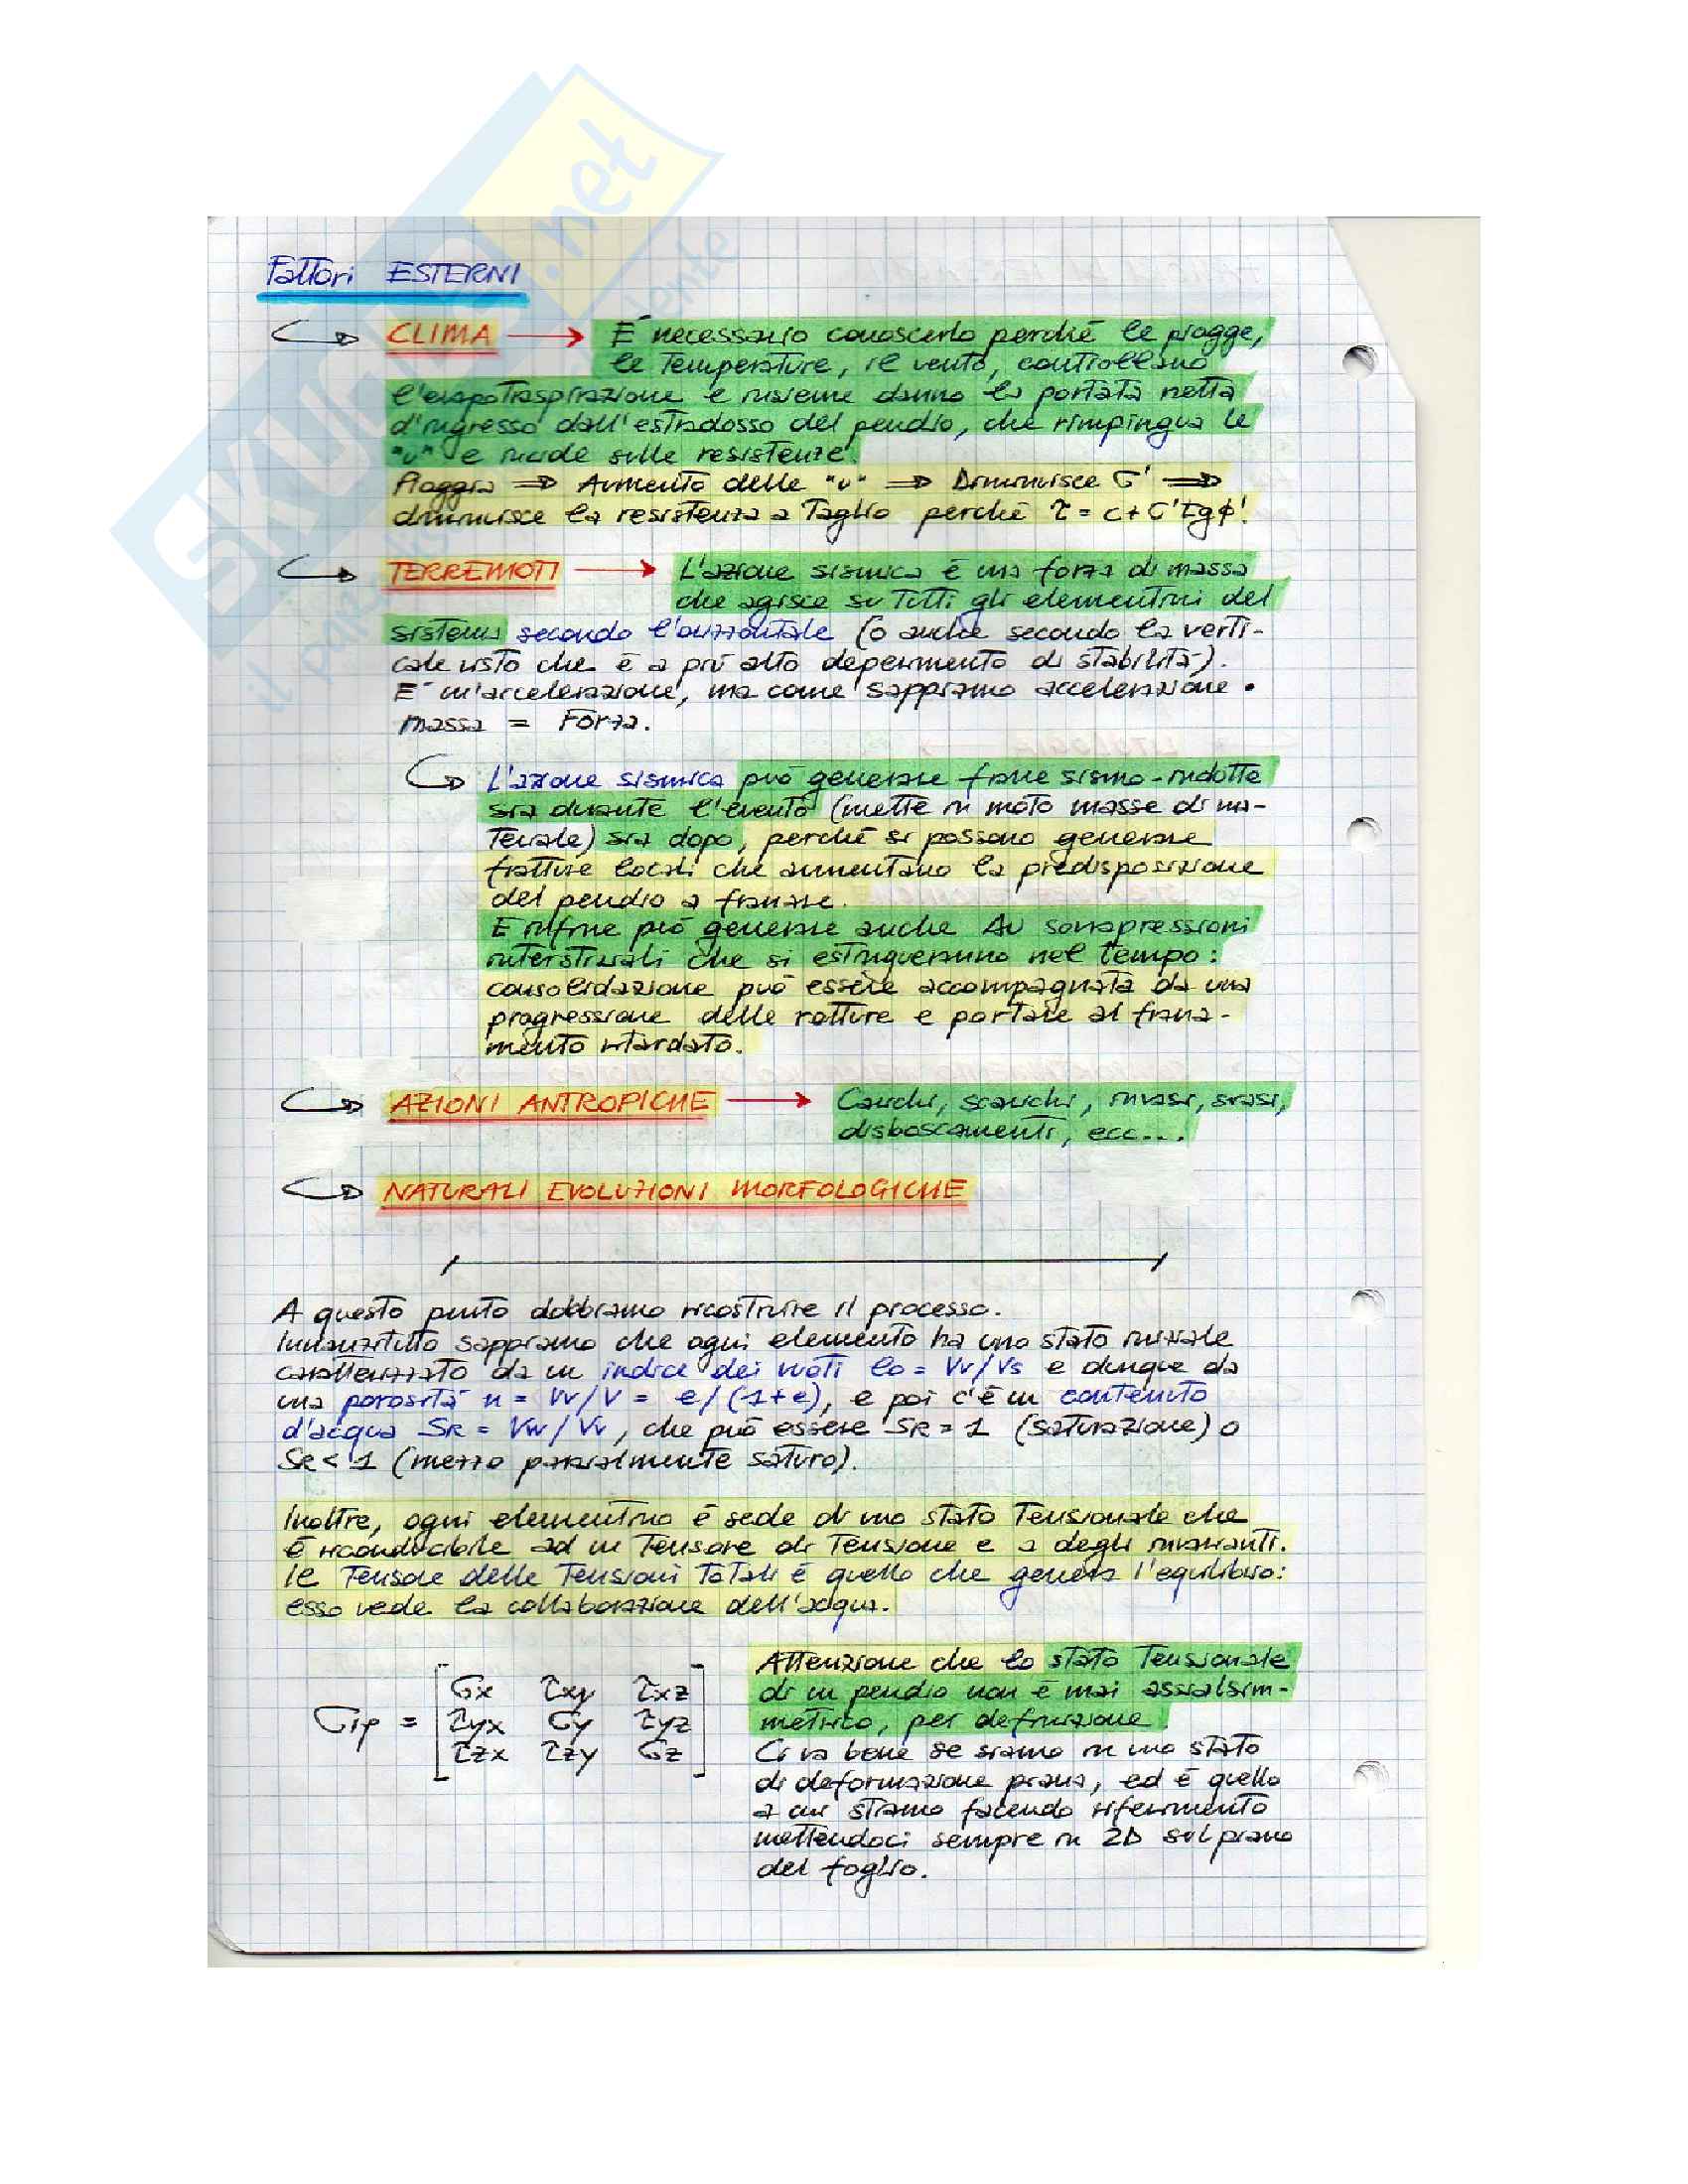 SKUOLA.net
il paradiso dello studente
Fattori ESTERNI
CLIMA → È necessario conoscerlo perché le piogge,
le temperature, il vento, controllano
l'evapotraspirazione e insieme danno la portata netta
d'ingresso dall'estradosso del pendio, che rimpingua le
"u" e incide sulle resistenze.
Pioggia ⇒ Aumento delle "u" ⇒ Diminuisce σ' ⇒
diminuisce la resistenza a taglio perché τ = c + σ'tgϕ'!
TERREMOTI → L'azione sismica è una forza di massa
che agisce su tutti gli elementini del
sistema secondo l'orizzontale (o anche secondo la verti-
cale visto che è a più alto deperimento di stabilità).
E' un'accelerazione, ma come sappiamo accelerazione •
massa = Forza.
L'azione sismica può generare frane sismo-indotte
sia durante l'evento (mette in moto masse di ma-
teriale) sia dopo, perché si possono generare
fratture locali che aumentano la predisposizione
del pendio a franare.
E infine può generare anche Δu sovrapressioni
interstiziali che si estingueranno nel tempo:
consolidazione può essere accompagnata da una
progressione delle rotture e portare al frana-
mento ritardato.
AZIONI ANTROPICHE → Carichi, scarichi, invasi, svasi,
disboscamenti, ecc...
NATURALI EVOLUZIONI MORFOLOGICHE
A questo punto dobbiamo ricostruire il processo.
Innanzitutto sappiamo che ogni elemento ha uno stato iniziale
caratterizzato da un indice dei vuoti e0 = Vv/Vs e dunque da
una porosità n = Vv/V = e/(1+e), e poi c'è un contenuto
d'acqua SR = Vw/Vv, che può essere SR = 1 (saturazione) o
SR < 1 (mezzo parzialmente saturo).
Inoltre, ogni elementino è sede di uno stato tensionale che
è riconducibile ad un tensore di tensione e a degli invarianti.
Il tensore delle tensioni totali è quello che genera l'equilibrio:
esso vede la collaborazione dell'acqua.
σx τxy τxz
σip = τyx σy τyz
τzx τzy σz
Attenzione che lo stato tensionale
di un pendio non è mai assialsim-
metrico, per definizione.
Ci va bene se siamo in uno stato
di deformazione piana, ed è quello
a cui stiamo facendo riferimento
mettendoci sempre in 2D sul piano
del foglio.